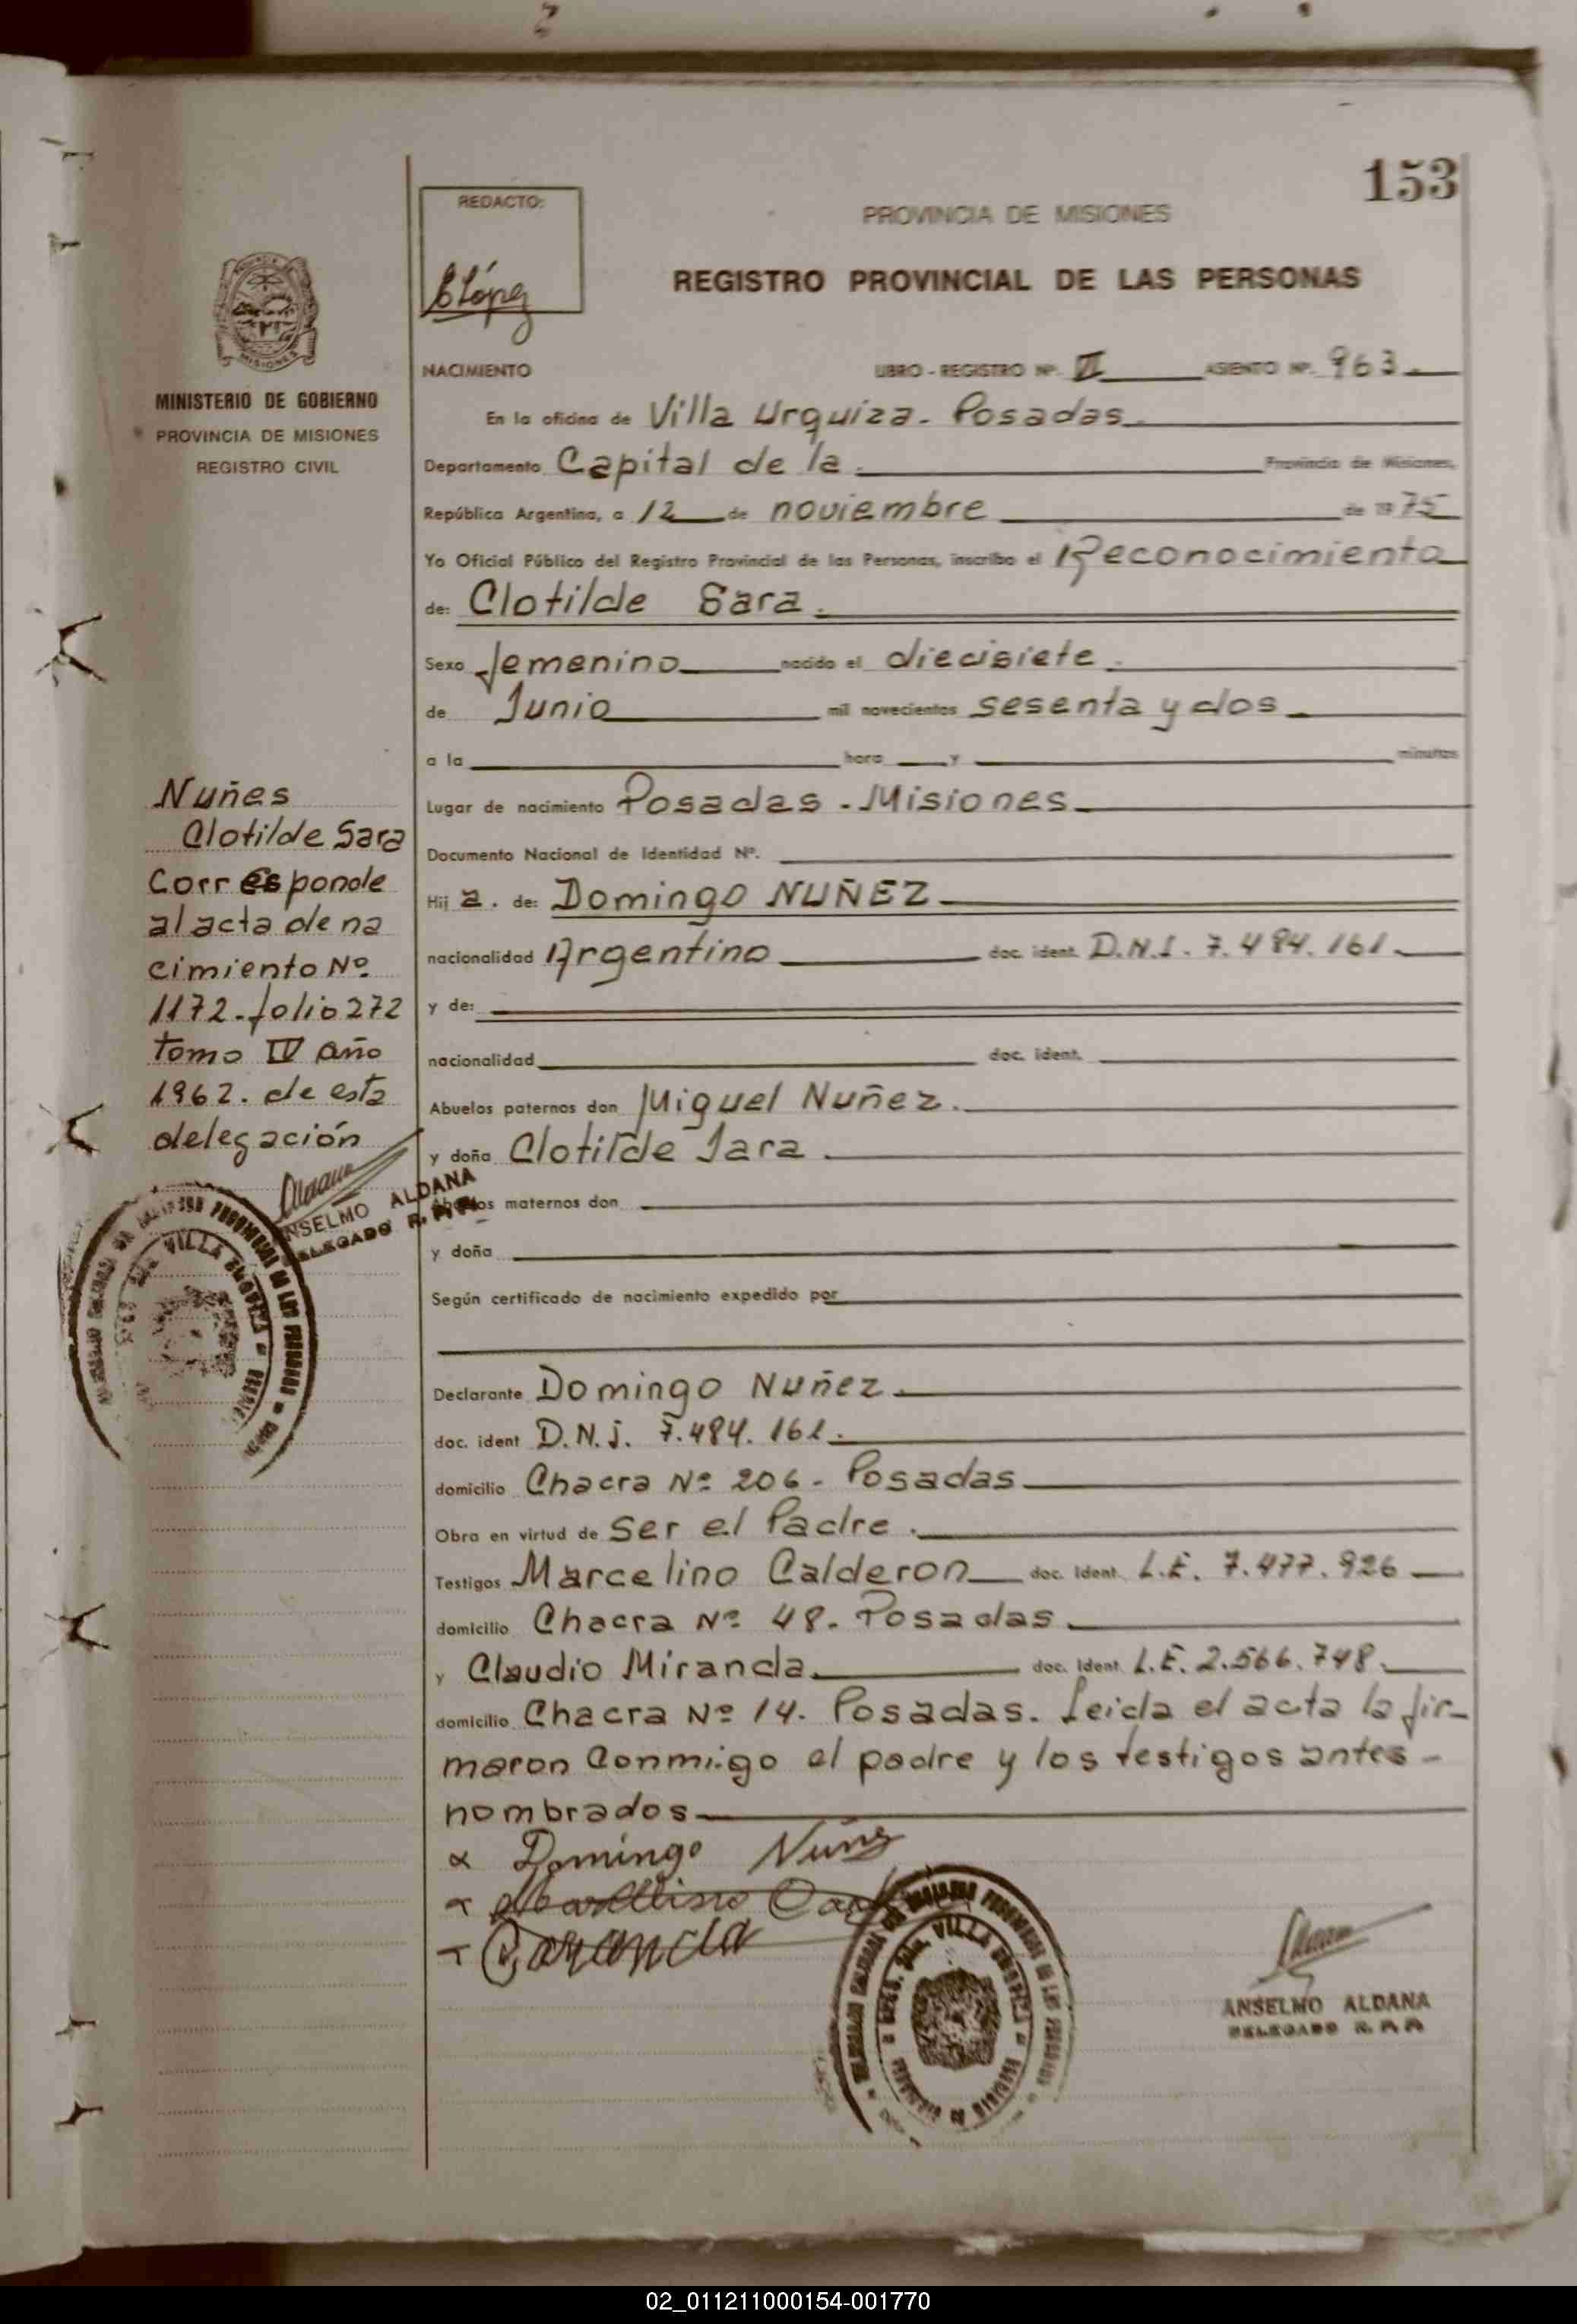 153
REDACTO:
López
PROVINCIA DE MISIONES
REGISTRO PROVINCIAL DE LAS PERSONAS
MISIONES
MINISTERIO DE GOBIERNO
PROVINCIA DE MISIONES
REGISTRO CIVIL
NACIMIENTO LIBRO - REGISTRO Nº. VI ASIENTO Nº. 963
En la oficina de Villa Urquiza - Posadas
Departamento Capital de la Provincia de Misiones,
República Argentina, a 12 de noviembre de 1975
Yo Oficial Público del Registro Provincial de las Personas, inscribo el Reconocimiento
de: Clotilde Sara.
Sexo femenino nacido el diecisiete
de Junio mil novecientos sesenta y dos
a la hora y minutos
Lugar de nacimiento Posadas - Misiones
Documento Nacional de Identidad Nº.
Hij a. de: Domingo NUÑEZ
nacionalidad Argentino doc. ident. D.N.I. 7.484.161
y de:
nacionalidad doc. ident.
Abuelos paternos don Miguel Nuñez.
y doña Clotilde Jara
Abuelos maternos don
y doña
Según certificado de nacimiento expedido por
Declarante Domingo Nuñez
doc. ident D.N.I. 7.484.161.
domicilio Chacra Nº 206 - Posadas
Obra en virtud de ser el Padre.
Testigos Marcelino Calderon doc. Ident. L.E. 7.477.926
domicilio Chacra Nº 48. Posadas
y Claudio Miranda doc. Ident. L.E. 2.566.748.
domicilio Chacra Nº 14. Posadas. Leida el acta la fir-
maron conmigo el padre y los testigos antes-
nombrados
Domingo Nuñez
ANSELMO ALDANA
DELEGADO R.P.P.
VILLA URQUIZA
Nuñes
Clotilde Sara
Corresponde
al acta de na
cimiento Nº
1172-folio 272
tomo IV año
1962. de esta
delegación
ANSELMO ALDANA
DELEGADO R.P.P.
VILLA URQUIZA
02_011211000154-001770